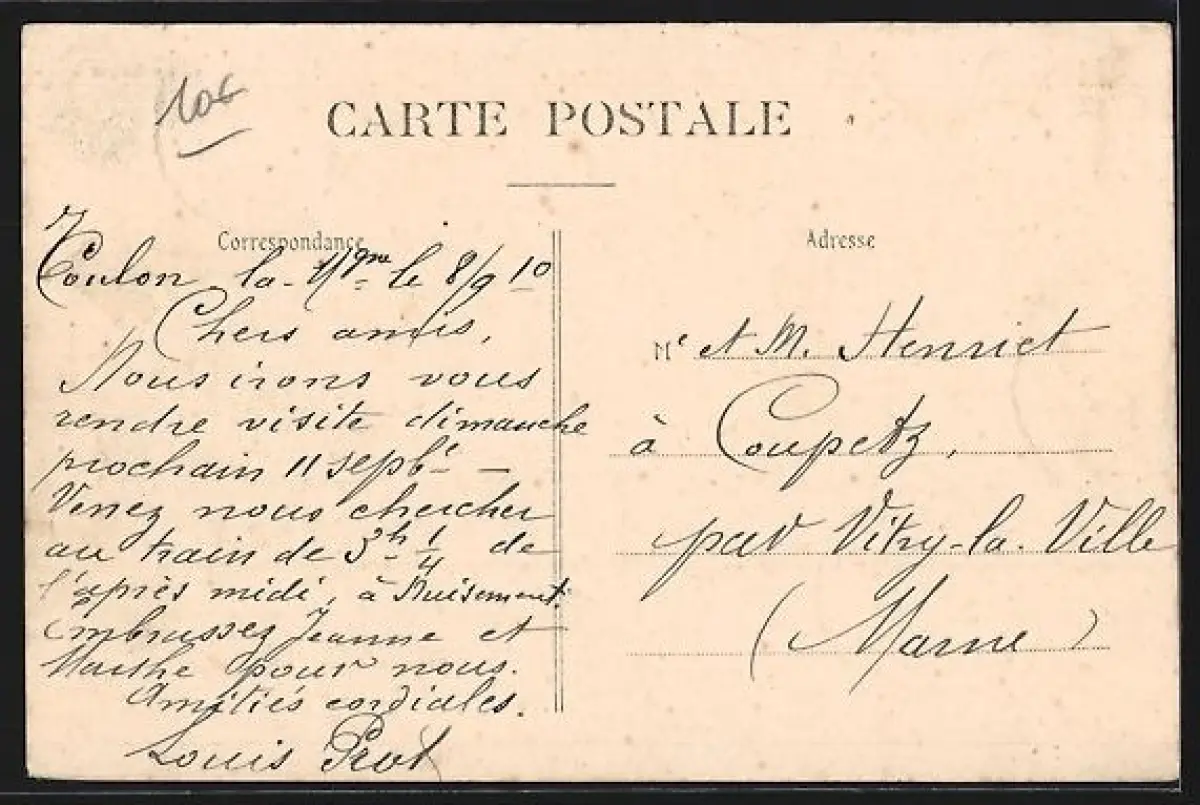 10€
CARTE POSTALE
Correspondance
Adresse
Toulon la Mgne le 8/9 10
Chers amis,
Nous irons vous
rendre visite dimanche
prochain 11 septbre –
Venez nous chercher
au train de 3h 1/4 de
l'après midi, à Nuisement.
Embrassez Jeanne et
Marthe pour nous.
Amitiés cordiales.
Louis Prot
Mr et M. Henriet
à Coupetz,
par Vitry-la-Ville
(Marne)